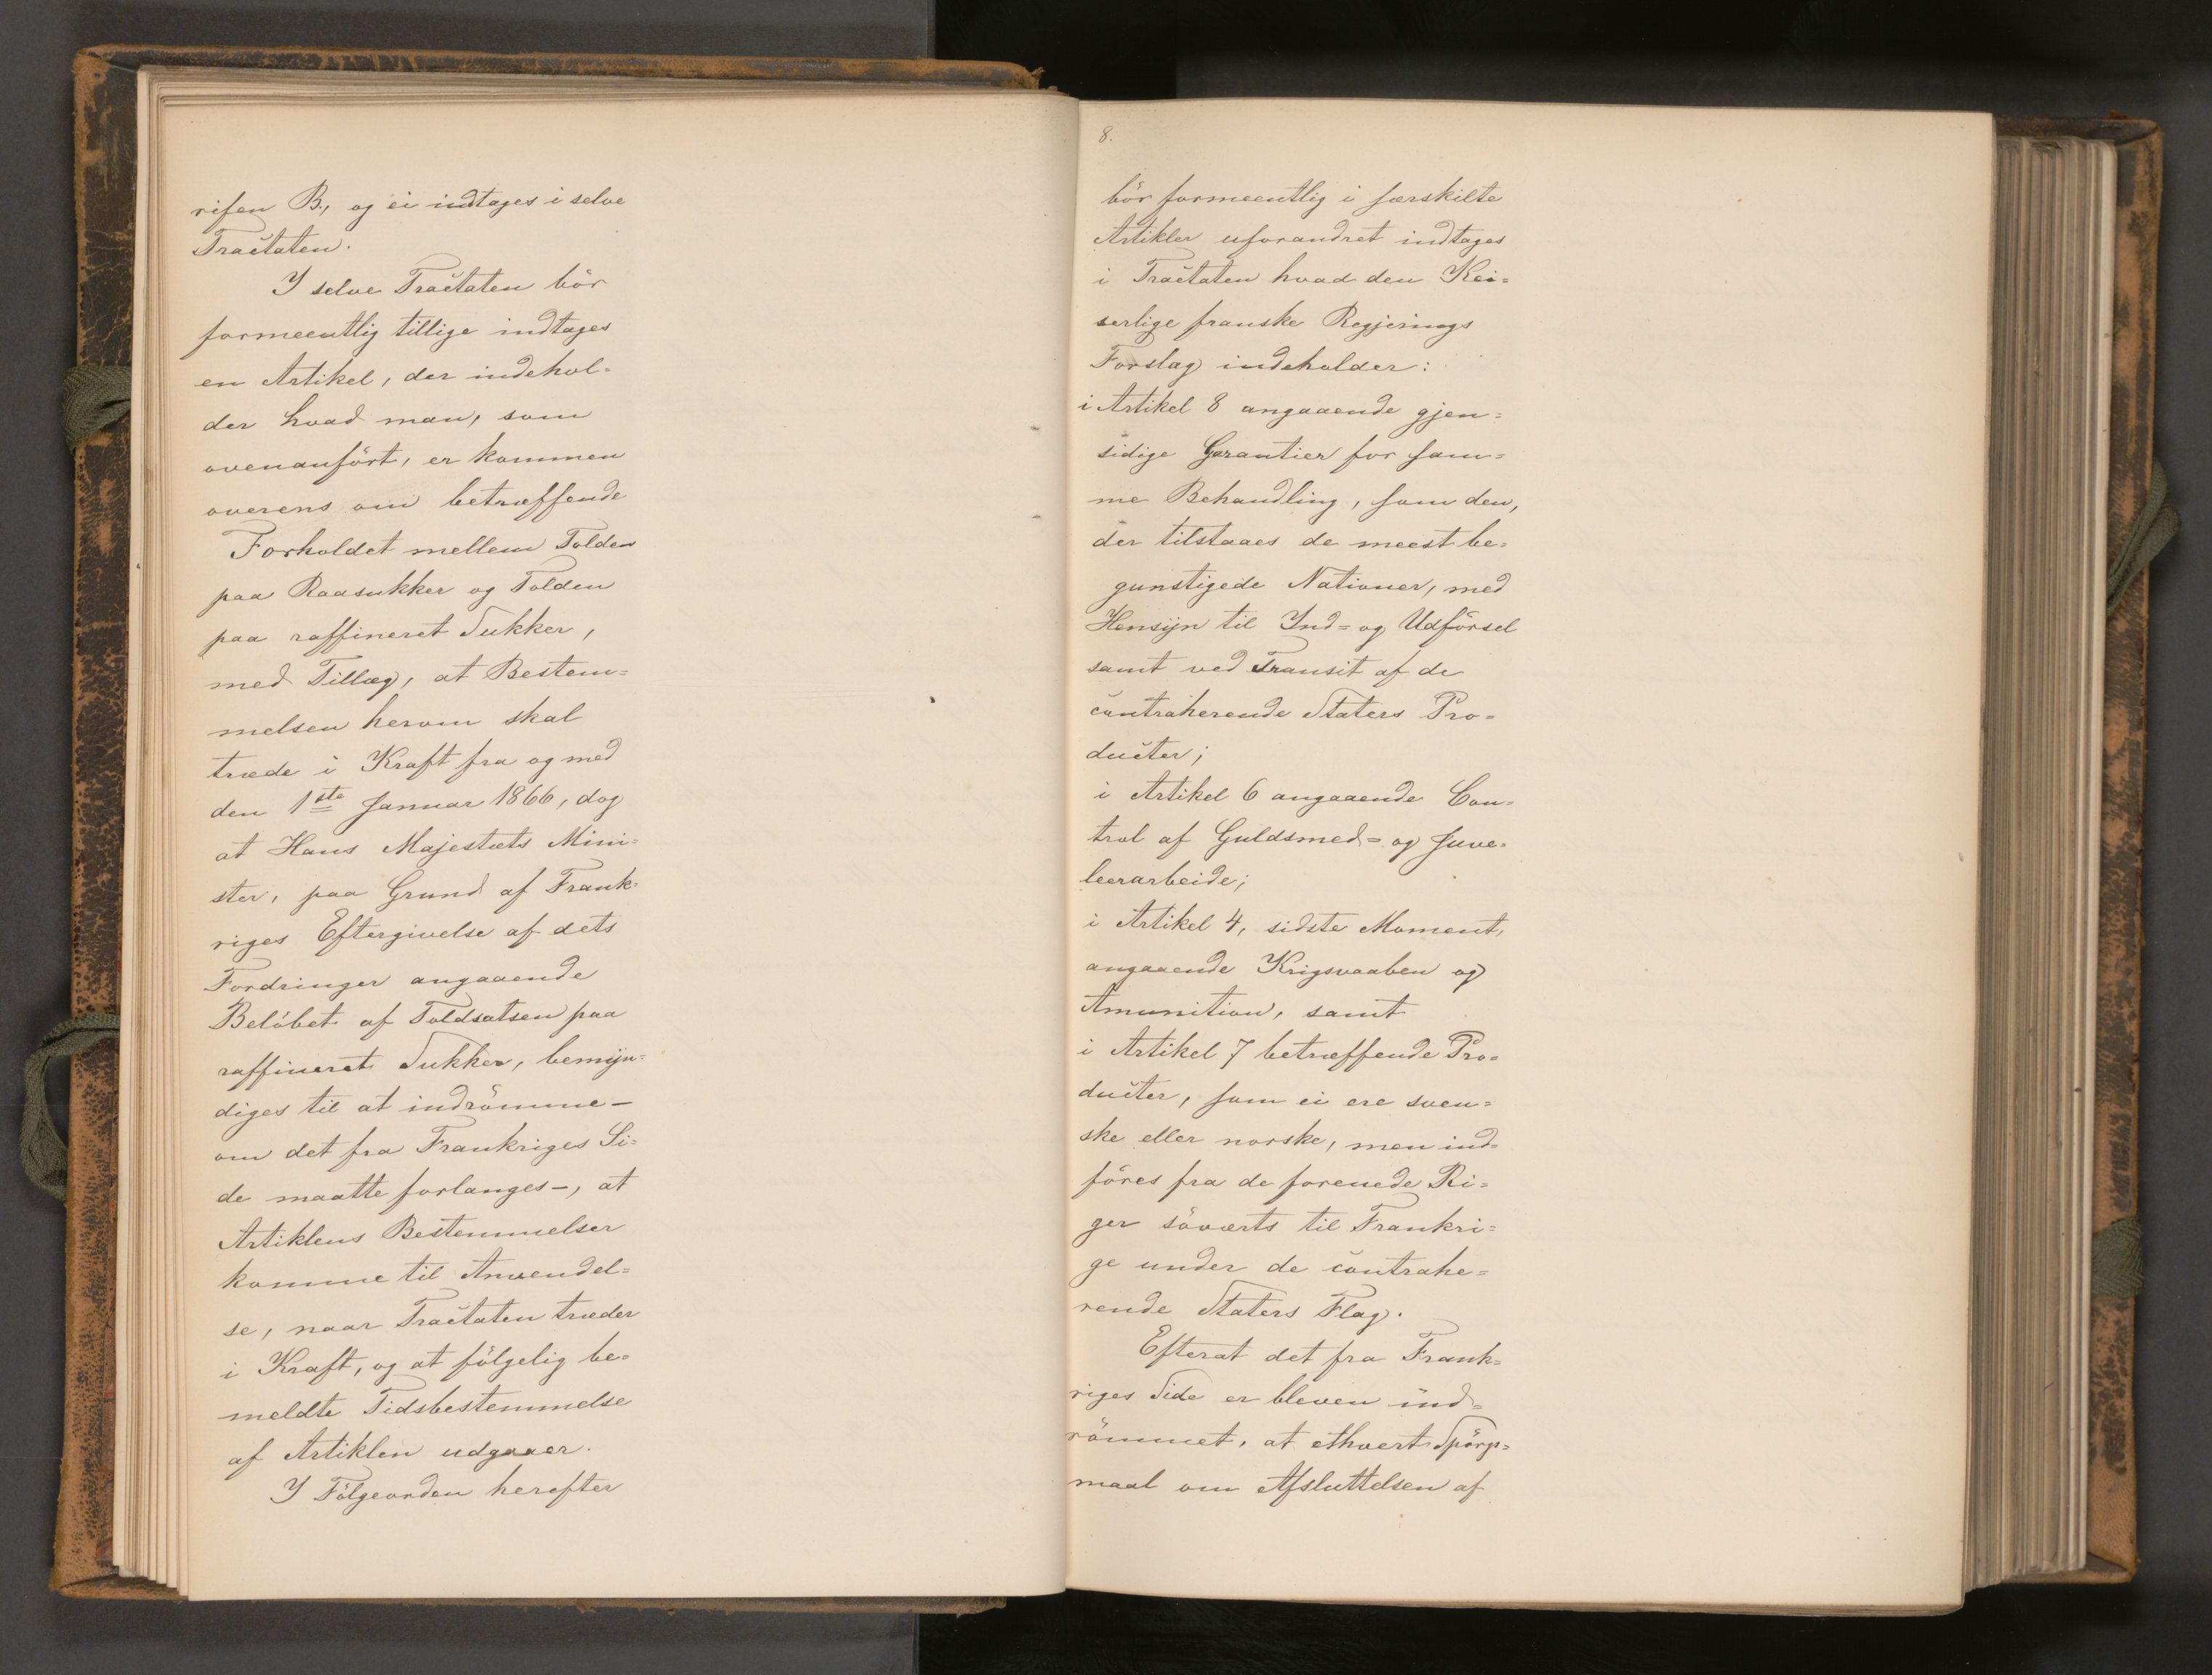 rifen B., og ei indtages i selve
Tractaten.
I selve Tractaten bör
formeentlig tillige indtages
en Artikel, der indehol=
der hvad man, som
ovenanfört, er kommen
overens om betræffende
Forholdet mellem Tolden
paa Raasukker og Tolden
paa raffineret Sukker,
med Tillæg, at Bestem=
melsen herom skal
træde i Kraft fra og med
den 1ste Januar 1866, dog
at Hans Majestæts Mini=
ster, paa Grund af Frank=
riges Eftergivelse af dets
Fordringer angaaende
Belöbet af Toldsatsen paa
raffineret Sukker, bemijn=
diges til at indrömme –
om det fra Frankriges Si=
de maatte forlanges –, at
Artiklens Bestemmelser
komme til Anvendel=
se, naar Tractaten træder
i Kraft, og at fölgelig be=
meldte Tidsbestemmelse
af Artiklen udgaaer.
I Fölgeorden herefter
8.
bör formeentlig i særskilte
Artikler uforandret indtages
i Tractaten hvad den Kei=
serlige franske Regjerings
Forslag indeholder:
i Artikel 8 angaaende gjen=
sidige Garantier for sam=
me Behandling, som den,
der tilstaaes de meest be=
gunstigede Nationer, med
Hensijn til Ind= og Udförsel
samt ved Transit af de
contraherende Staters Pro=
ducter;
i Artikel 6 angaaende Con=
trol af Guldsmed= og Juve=
leerarbeide;
i Artikel 4, sidste Moment,
angaaende Krigsvaaben og
Amunition, samt
i Artikel 7 betræffende Pro=
ducter, som ei ere sven=
ske eller norske, men ind=
föres fra de forenede Ri=
ger söværts til Frankri=
ge under de contrahe=
rende Staters Flag.
Efterat det fra Frank=
riges Side er bleven ind=
römmet, at ethvert Spörgs=
maal om Afsluttelsen af